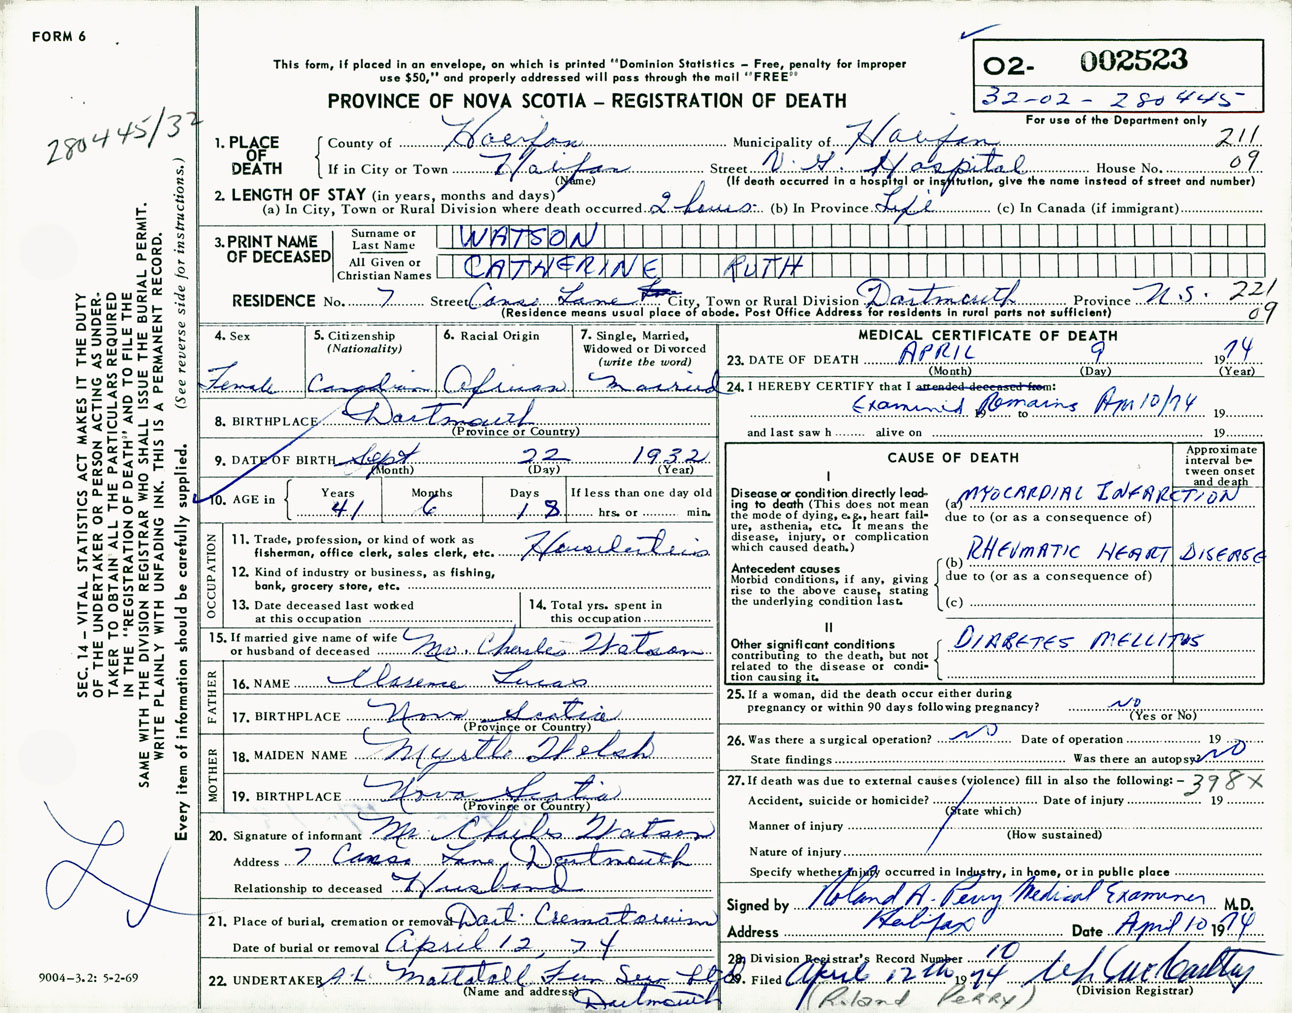 FORM 6
This form, if placed in an envelope, on which is printed "Dominion Statistics – Free, penalty for improper
use $50," and properly addressed will pass through the mail "FREE"
PROVINCE OF NOVA SCOTIA – REGISTRATION OF DEATH
02- 002523
32-02 - 280445
For use of the Department only
280445/32
1. PLACE OF DEATH
County of Halifax Municipality of Halifax 211
If in City or Town Halifax Street V. G. Hospital House No. 09
(Name) (If death occurred in a hospital or institution, give the name instead of street and number)
2. LENGTH OF STAY (in years, months and days)
(a) In City, Town or Rural Division where death occurred 2 hours. (b) In Province Life (c) In Canada (if immigrant)
3. PRINT NAME OF DECEASED
Surname or Last Name WATSON
All Given or Christian Names CATHERINE RUTH
RESIDENCE No. 7 Street Canso Lane City, Town or Rural Division Dartmouth Province N.S. 221
(Residence means usual place of abode. Post Office Address for residents in rural parts not sufficient) 09
4. Sex
Female
5. Citizenship
(Nationality)
Canadian
6. Racial Origin
African
7. Single, Married,
Widowed or Divorced
(write the word)
Married
8. BIRTHPLACE Dartmouth
(Province or Country)
9. DATE OF BIRTH Sept 22 1932
(Month) (Day) (Year)
10. AGE in Years 41 Months 6 Days 18 If less than one day old
hrs. or min.
OCCUPATION
11. Trade, profession, or kind of work as
fisherman, office clerk, sales clerk, etc.
12. Kind of industry or business, as fishing,
bank, grocery store, etc.
13. Date deceased last worked
at this occupation
14. Total yrs. spent in
this occupation
15. If married give name of wife
or husband of deceased Mr. Charles Watson
FATHER
16. NAME Clarence Lucas
17. BIRTHPLACE Nova Scotia
(Province or Country)
MOTHER
18. MAIDEN NAME Myrtle Welsh
19. BIRTHPLACE Nova Scotia
(Province or Country)
20. Signature of informant Mr. Charles Watson
Address 7 Canso Lane, Dartmouth
Relationship to deceased Husband
21. Place of burial, cremation or removal Dart. Crematorium
Date of burial or removal April 12, 74
22. UNDERTAKER A.L. Mattatall Fun Ser Ltd
(Name and address) Dartmouth
MEDICAL CERTIFICATE OF DEATH
23. DATE OF DEATH APRIL 9 1974
(Month) (Day) (Year)
24. I HEREBY CERTIFY that I attended deceased from:
Examined Remains to Apr 10/74 19
and last saw h alive on 19
CAUSE OF DEATH
Approximate
interval be-
tween onset
and death
I
Disease or condition directly lead-
ing to death (This does not mean
the mode of dying, e.g., heart fail-
ure, asthenia, etc. It means the
disease, injury, or complication
which caused death.)
(a) MYOCARDIAL INFARCTION
due to (or as a consequence of)
Antecedent causes
Morbid conditions, if any, giving
rise to the above cause, stating
the underlying condition last.
(b) RHEUMATIC HEART DISEASE
due to (or as a consequence of)
(c)
II
Other significant conditions
contributing to the death, but not
related to the disease or condi-
tion causing it.
DIABETES MELLITUS
25. If a woman, did the death occur either during
pregnancy or within 90 days following pregnancy? NO
(Yes or No)
26. Was there a surgical operation? NO Date of operation 19
State findings Was there an autopsy NO
27. If death was due to external causes (violence) fill in also the following: – 398X
Accident, suicide or homicide? Date of injury 19
(State which)
Manner of injury
(How sustained)
Nature of injury
Specify whether Injury occurred in Industry, in home, or in public place
Signed by Roland A. Perry Medical Examiner M.D.
Address Halifax Date April 10 1974
28. Division Registrar's Record Number 10
29. Filed April 12th 1974
(Division Registrar)
(Roland PERRY)
SEC. 14 – VITAL STATISTICS ACT MAKES IT THE DUTY
OF THE UNDERTAKER OR PERSON ACTING AS UNDER-
TAKER TO OBTAIN ALL THE PARTICULARS REQUIRED
IN THE "REGISTRATION OF DEATH" AND TO FILE THE
SAME WITH THE DIVISION REGISTRAR WHO SHALL ISSUE THE BURIAL PERMIT.
WRITE PLAINLY WITH UNFADING INK. THIS IS A PERMANENT RECORD.
Every item of information should be carefully supplied. (See reverse side for instructions.)
9004-3.2: 5-2-69